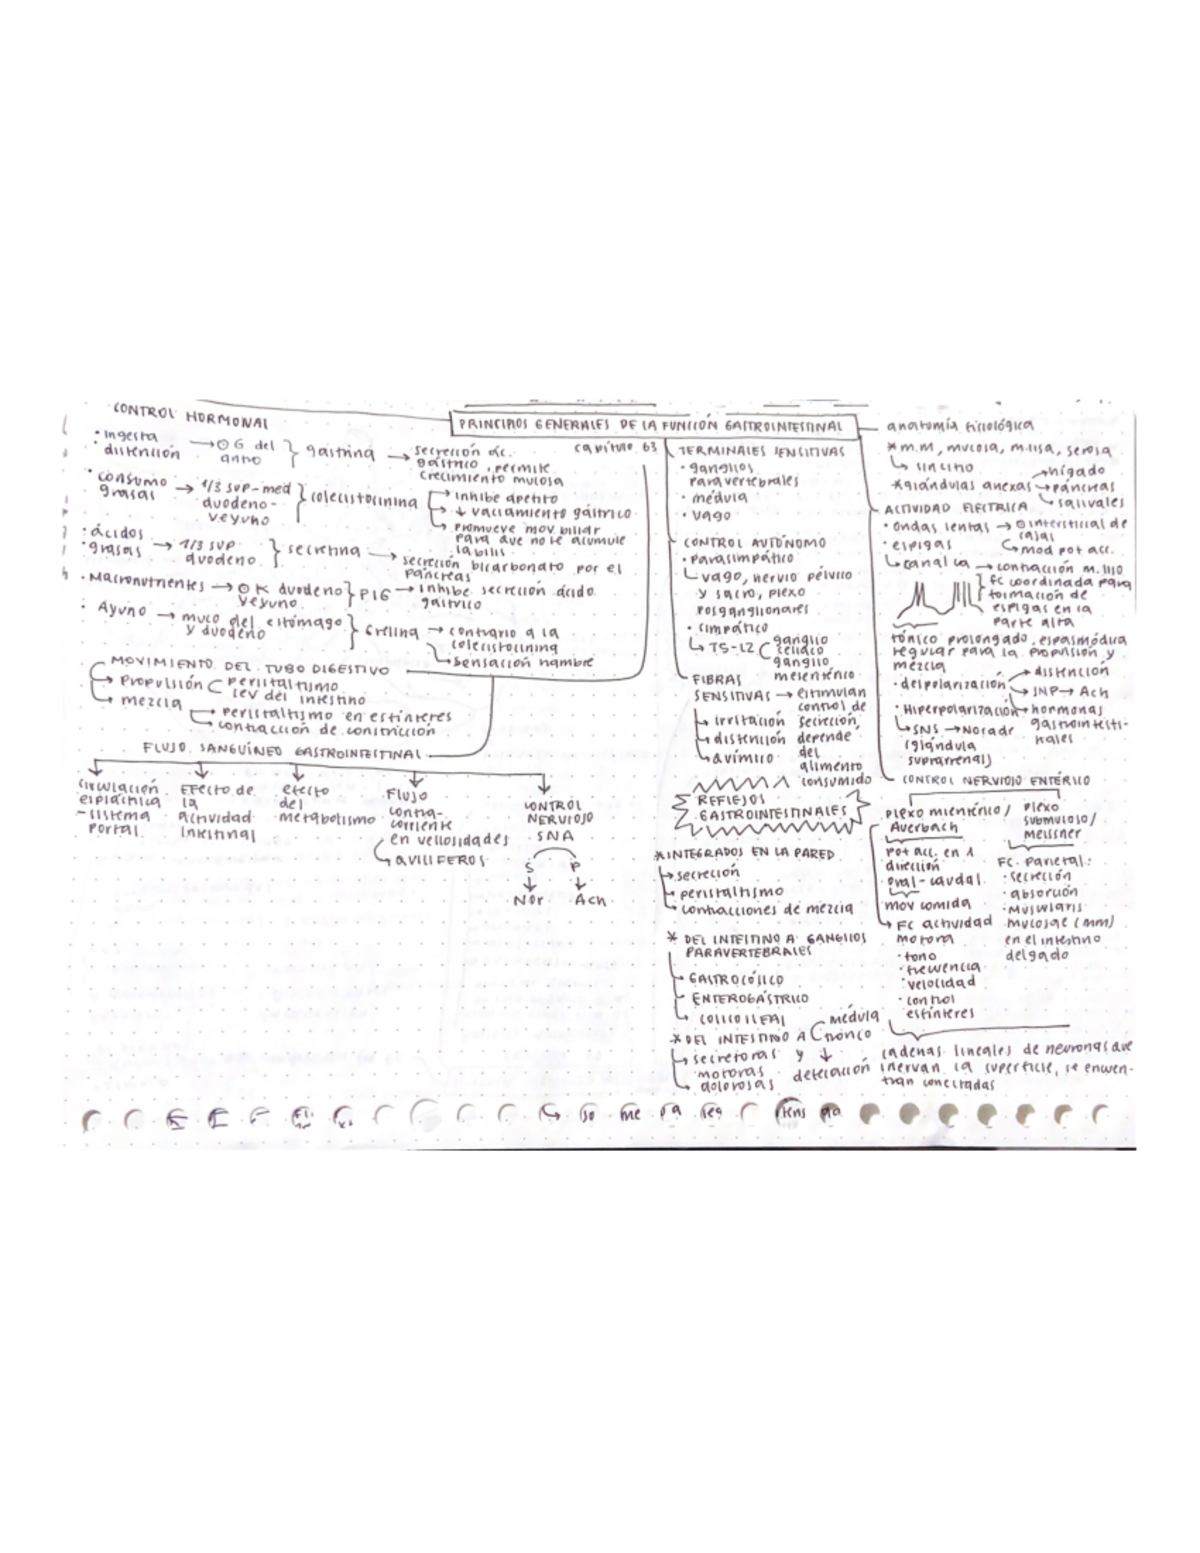 CONTROL HORMONAL
PRINCIPIOS GENERALES DE LA FUNCIÓN GASTROINTESTINAL
capítulo 63
· Ingesta
distención → G del antro } gastrina → secreción ác. gástrico, permite crecimiento mucosa
· consumo grasas → 1/3 sup-med duodeno-yeyuno } colecistocinina
→ inhibe apetito
→ ↓ vaciamiento gástrico
→ promueve mov biliar para que no se acumule la bilis
· ácidos
· grasas → 1/3 sup duodeno } secretina → secreción bicarbonato por el páncreas
· Macronutrientes → K duodeno yeyuno } PIG → inhibe secreción ácido gástrico
· Ayuno → muco del estómago y duodeno } Grelina → contrario a la colecistocinina
→ sensación hambre
MOVIMIENTO DEL TUBO DIGESTIVO
→ Propulsión peristaltismo
ley del intestino
→ mezcla
→ peristaltismo en esfínteres
→ contracción de constricción
FLUJO SANGUÍNEO GASTROINTESTINAL
circulación esplácnica - sistema portal
Efecto de la actividad intestinal
efecto del metabolismo
Flujo contra-corriente en vellosidades
→ quilíferos
CONTROL NERVIOSO SNA
S P
Nor Ach
TERMINALES SENSITIVAS
· ganglios paravertebrales
· médula
· vago
CONTROL AUTÓNOMO
· Parasimpático
→ vago, nervio pélvico
y sacro, plexo
posganglionares
· simpático
→ T5-L2 ganglio celiaco
ganglio mesentérico
FIBRAS SENSITIVAS → estimulan control de secreción, depende del alimento consumido
→ irritación
→ distención
→ químico
REFLEJOS
GASTROINTESTINALES
* INTEGRADOS EN LA PARED
→ secreción
→ peristaltismo
→ contracciones de mezcla
* DEL INTESTINO A GANGLIOS
PARAVERTEBRALES
→ GASTROCÓLICO
→ ENTEROGÁSTRICO
→ COLICOILEAL
* DEL INTESTINO A médula
tronco
→ secretoras y motoras
→ dolorosas
↓ defecación
anatomía fisiológica
* m.m, mucosa, m.lisa, serosa
→ sincitio
* glándulas anexas → hígado
→ páncreas
→ salivales
ACTIVIDAD ELECTRICA
· ondas lentas → intersticial de cajal
→ mod pot acc.
· espigas
→ canal Ca → contracción m. liso
} fc coordinada para formación de espigas en la parte alta
tónico prolongado, espasmódica
regular para la propulsión y
mezcla
· despolarización → distención
→ SNP → Ach
→ hormonas gastrointestinales
· Hiperpolarización
→ SNS → Noradr
(glándula
suprarrenal)
CONTROL NERVIOSO ENTÉRICO
plexo mientérico/
Auerbach
pot acc. en 1
dirección
oral-caudal
mov comida
→ FC actividad
motora
· tono
· frecuencia
· velocidad
· control
esfínteres
plexo
submucoso/
Meissner
FC. parietal:
· secreción
· absorción
· Muscularis
mucosae (mm)
en el intestino
delgado
cadenas lineales de neuronas que
inervan la superficie, se encuen-
tran conectadas
so me pa seg